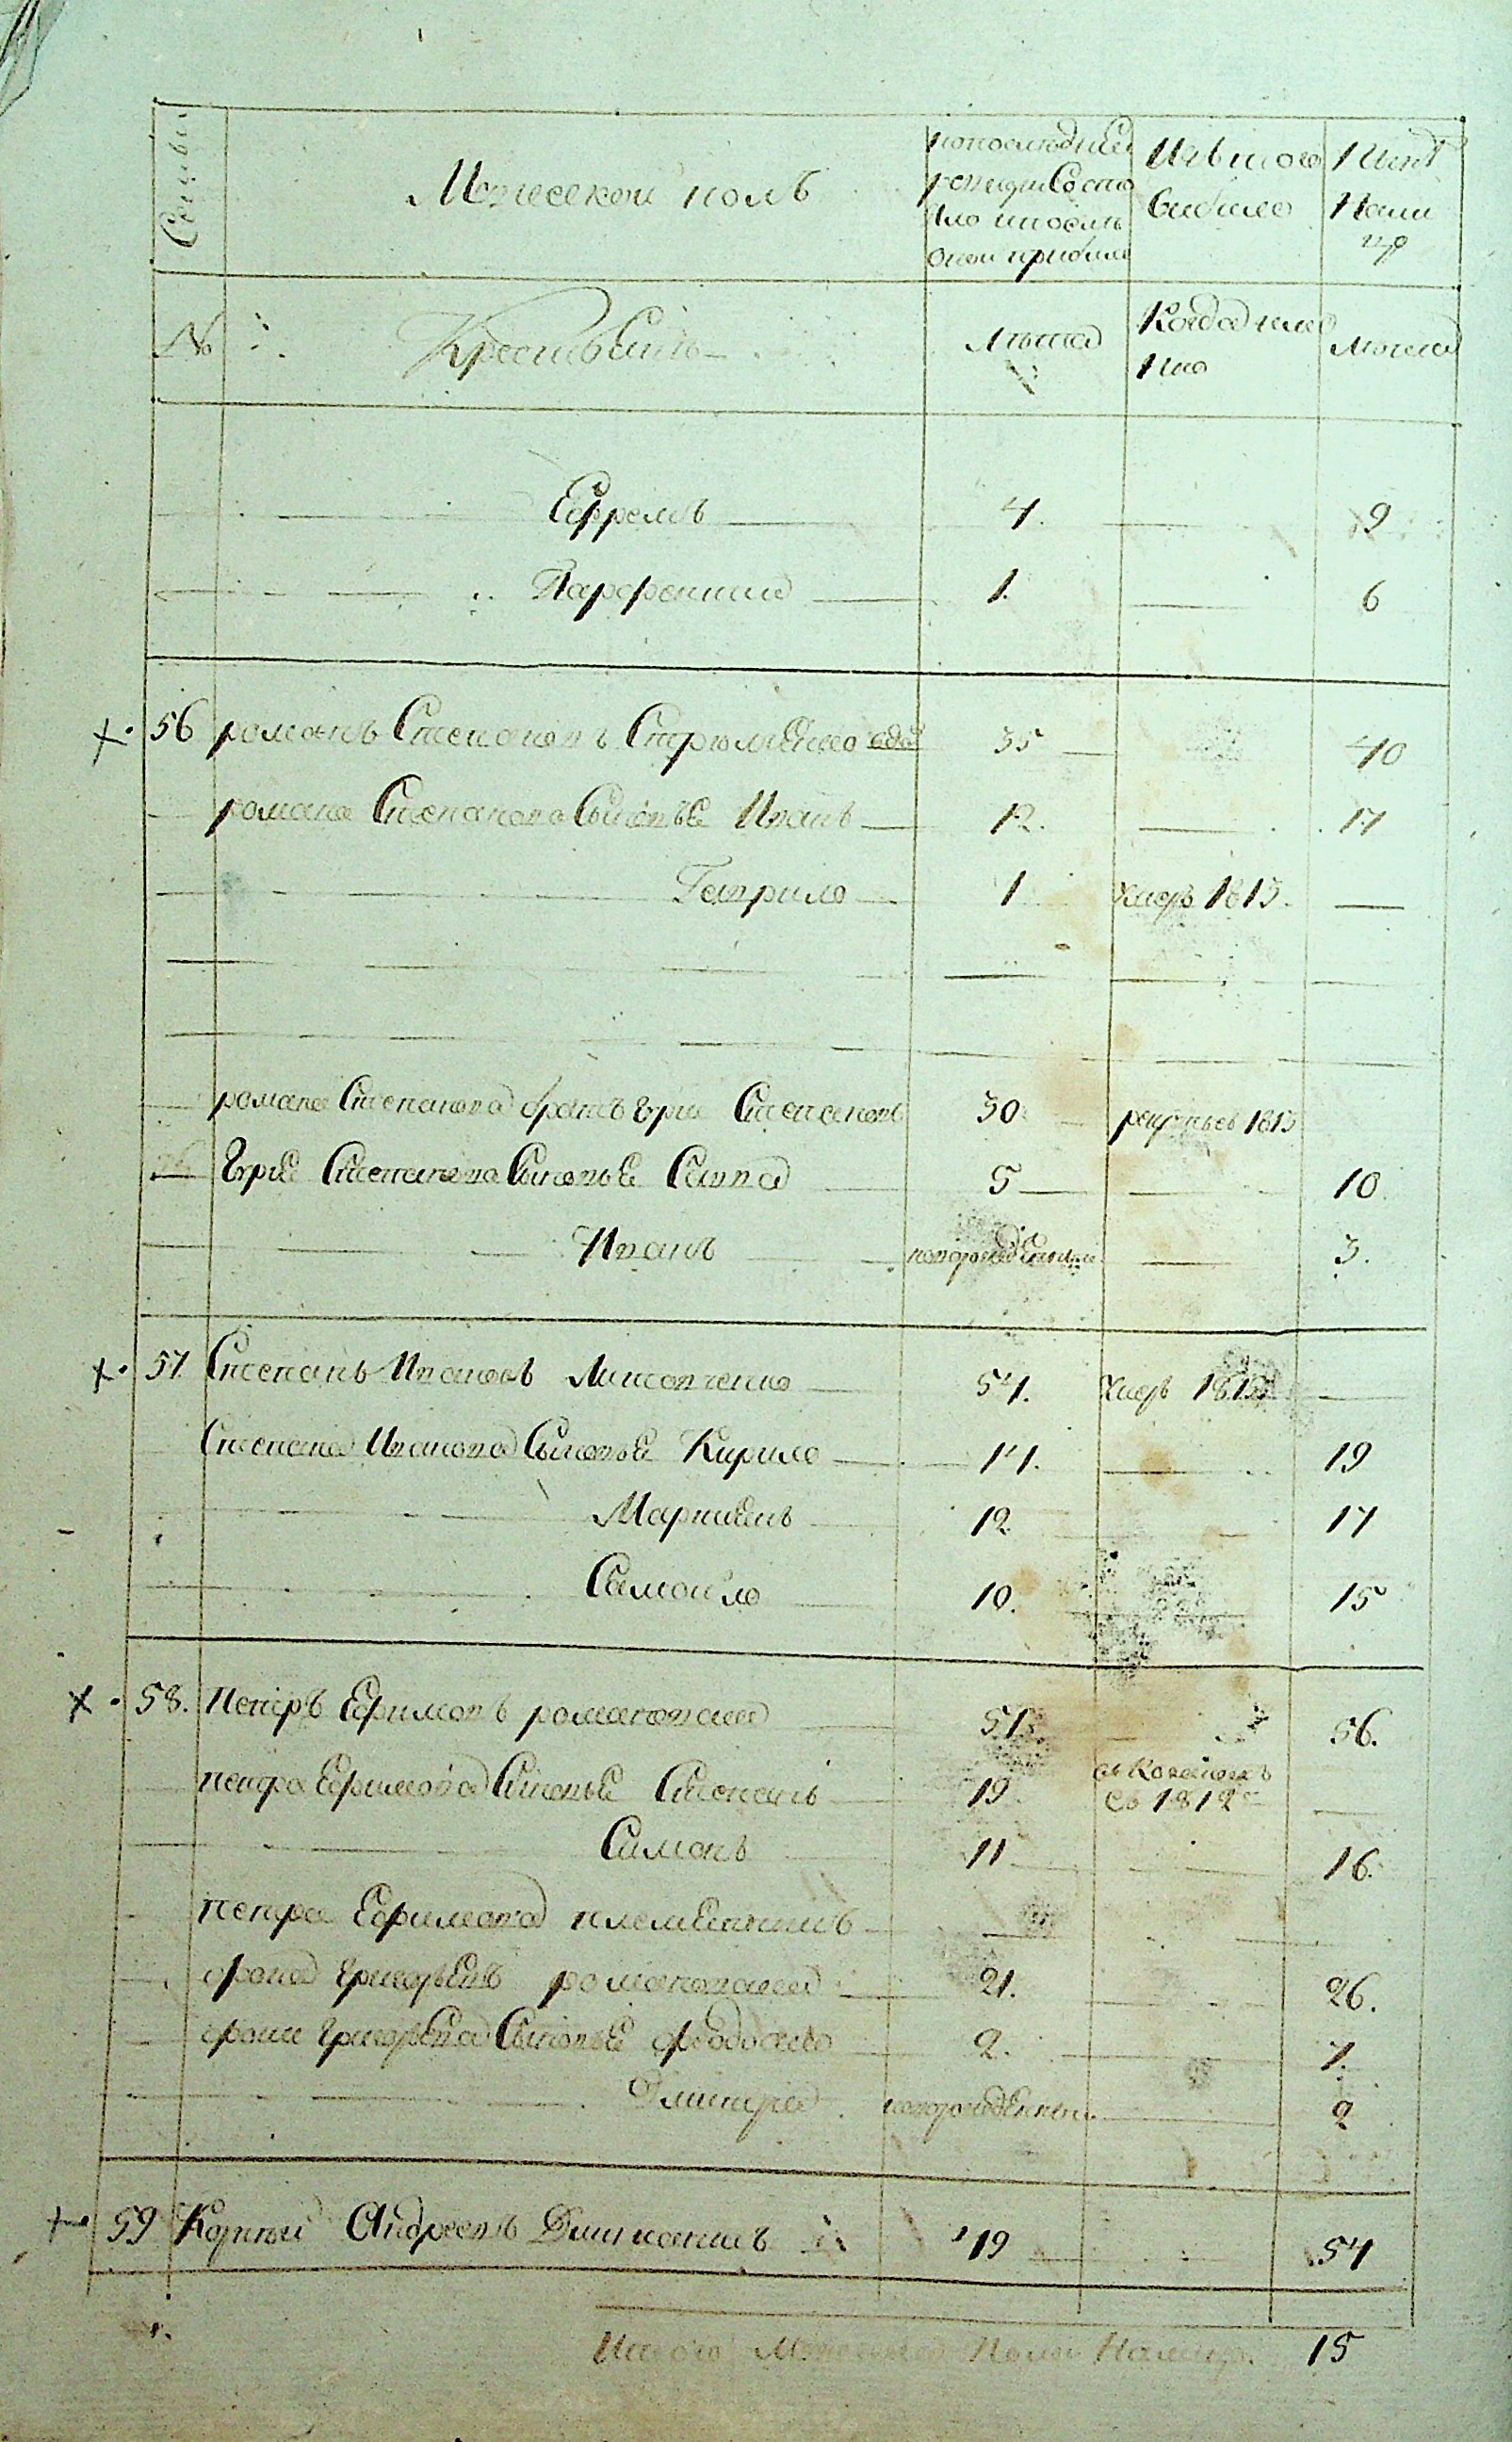 Семьи
Мужеской полъ
По последней
ревизии Состо
яло и после
оной прибыло
Изъ того
выбыло
Ныне
Нали
цо
№
Крестьянъ
Лета
Когда имен
но
Лета
Ефремъ 4. 9
Парфенний 1. 6
56 романъ Степановъ 35 40
романа Степанова Сыновье Иванъ 12. 17
Гаврило 1 Умеръ 1813.
романа Степанова братъ Гури Степановъ 30 рекрутъ в 1813
Гурия Степанова Сыновье Савва 5 10
Иванъ новорожденный 3.
57. Степанъ Ивановъ Литовченко 54. Умеръ 1815
Степана Иванова Сыновье Кирило 14. 19
Мартинъ 12. 17
Самоило 10. 15
58. Петръ Ефимовъ романоваши 51. 56.
петра Ефимова Сыновье Степанъ 19 въ Козакахъ
съ 1812
Симонъ 11 16.
петра Ефимова племенникъ
фона Григорьевъ романоваши 21. 26.
фоми Григорьева Сыновье феодосий 2. 7.
Дмитрей новорожденный 2
59 Корней Андреевъ 49 54
Итого Мужеска Пола Налицо. 15